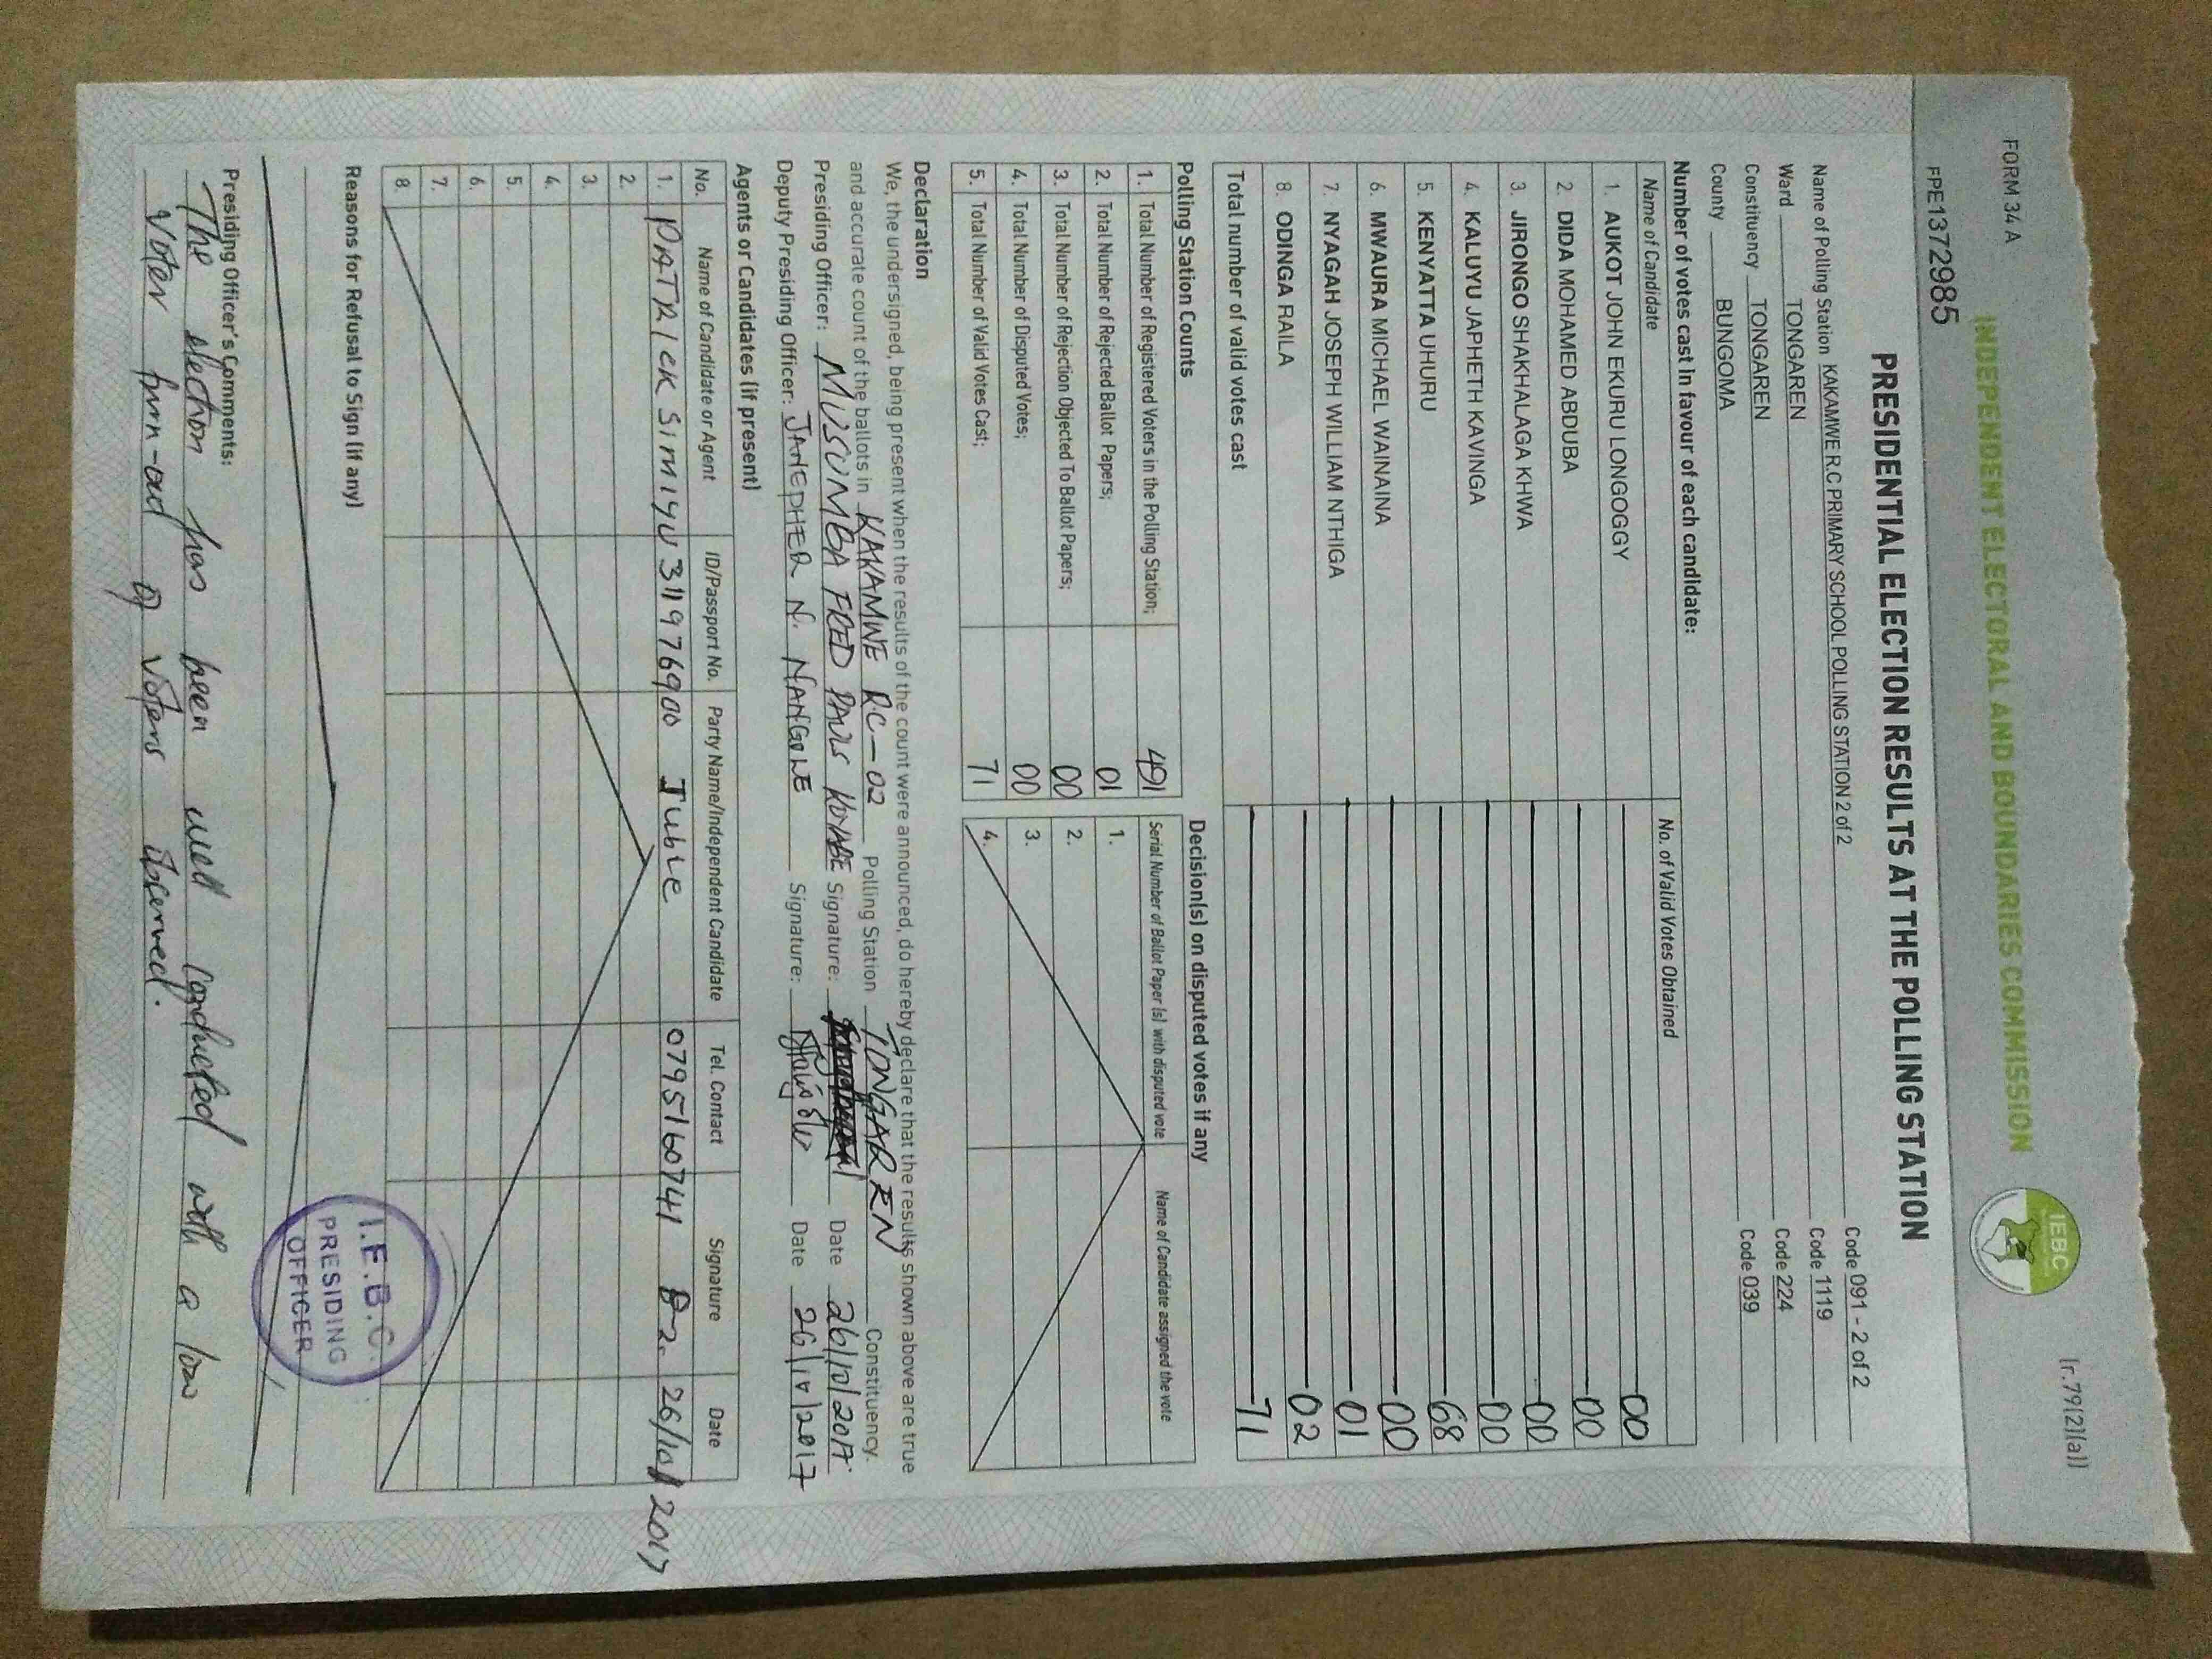 FORM 34 A
[r.79(2)(a)]
INDEPENDENT ELECTORAL AND BOUNDARIES COMMISSION
IEBC
FPE1372985
PRESIDENTIAL ELECTION RESULTS AT THE POLLING STATION
Name of Polling Station KAKAMWE R.C PRIMARY SCHOOL POLLING STATION 2 of 2 Code 091 - 2 of 2
Ward TONGAREN Code 1119
Constituency TONGAREN Code 224
County BUNGOMA Code 039
Number of votes cast in favour of each candidate:
Name of Candidate No. of Valid Votes Obtained
1. AUKOT JOHN EKURU LONGOGGY 00
2. DIDA MOHAMED ABDUBA 00
3. JIRONGO SHAKHALAGA KHWA 00
4. KALUYU JAPHETH KAVINGA 00
5. KENYATTA UHURU 68
6. MWAURA MICHAEL WAINAINA 00
7. NYAGAH JOSEPH WILLIAM NTHIGA 01
8. ODINGA RAILA 02
Total number of valid votes cast 71
Polling Station Counts
1. Total Number of Registered Voters in the Polling Station; 491
2. Total Number of Rejected Ballot Papers; 01
3. Total Number of Rejection Objected To Ballot Papers; 00
4. Total Number of Disputed Votes; 00
5. Total Number of Valid Votes Cast; 71
Decision(s) on disputed votes if any
Serial Number of Ballot Paper (s) with disputed vote Name of Candidate assigned the vote
1.
2.
3.
4.
Declaration
We, the undersigned, being present when the results of the count were announced, do hereby declare that the results shown above are true
and accurate count of the ballots in KAKAMWE R.C - 02 Polling Station TONGAREN Constituency.
Presiding Officer: MUSUMBA FRED PAUL Signature: Date 26/10/2017.
Deputy Presiding Officer: JANEPHER N. NANGOLE Signature: Date 26/10/2017
Agents or Candidates (if present)
No. Name of Candidate or Agent ID/Passport No. Party Name/Independent Candidate Tel. Contact Signature Date
1. PATRICK SIMIYU 31197690 0 JUBLE 0795160741 26/10/2017
2.
3.
4.
5.
6.
7.
8.
Reasons for Refusal to Sign (if any)
I.E.B.C.
PRESIDING
OFFICER
Presiding Officer's Comments:
The election has been well conducted with a low
voter turn-out of voters observed.